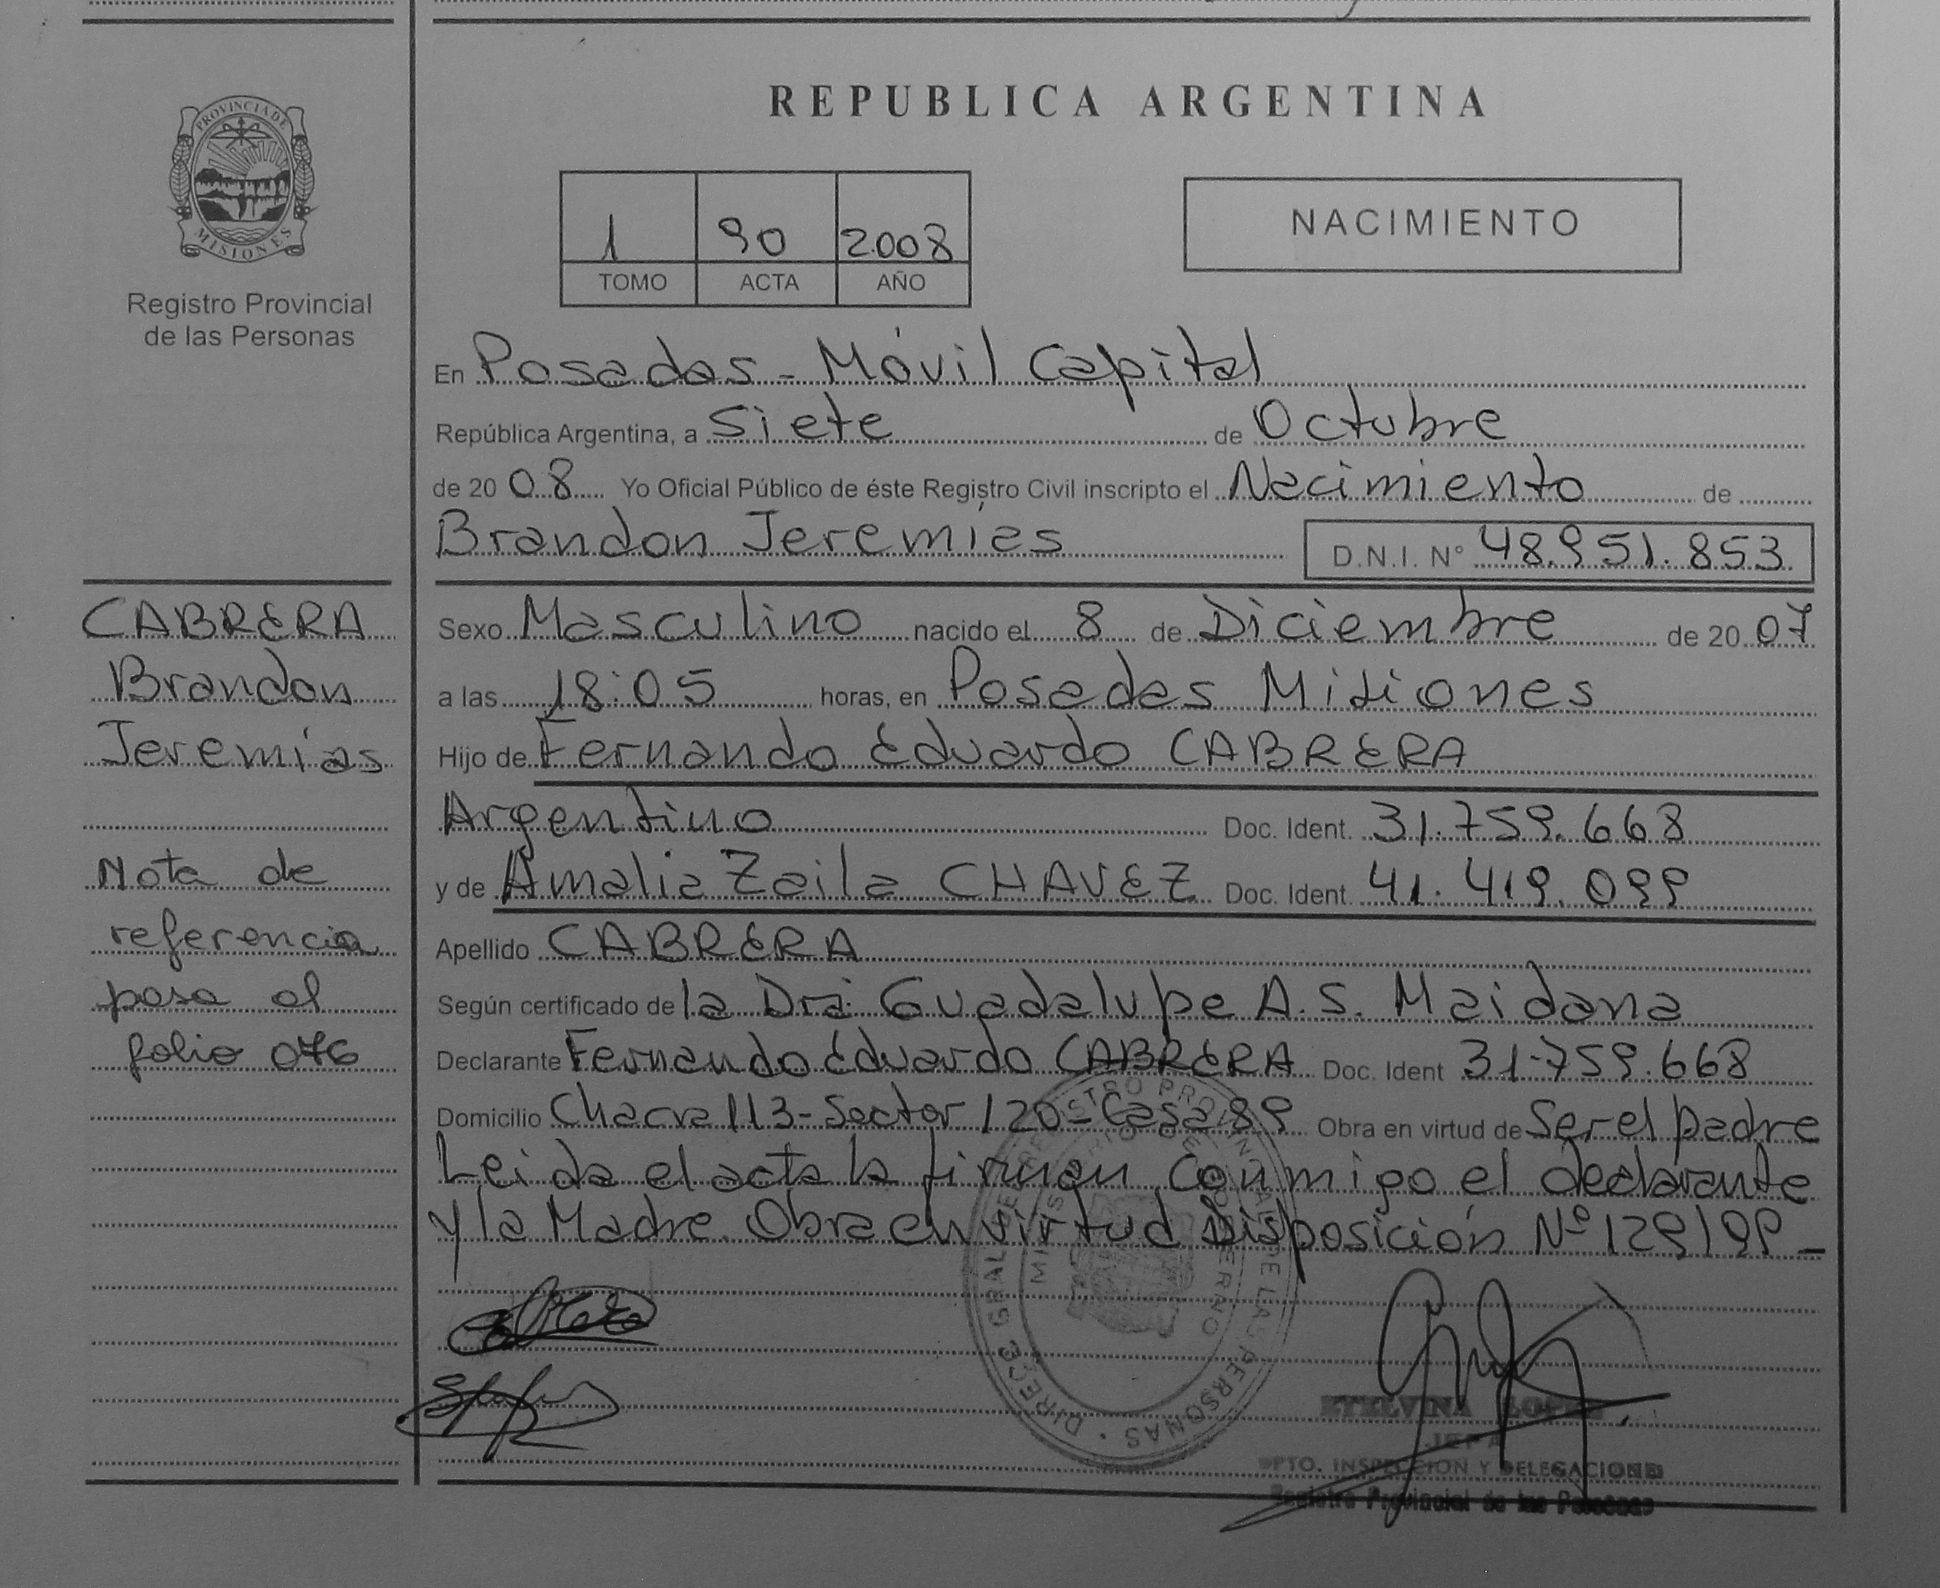 PROVINCIA DE
MISIONES
Registro Provincial
de las Personas
CABRERA
Brandon
Jeremías
Nota de
referencia
pasa al
folio 076
REPUBLICA ARGENTINA
1 90 2008
TOMO ACTA AÑO
NACIMIENTO
En Posadas - Móvil Capital
República Argentina, a Siete de Octubre
de 2008 Yo Oficial Público de éste Registro Civil inscripto el Nacimiento de
Brandon Jeremías D.N.I. N° 48.951.853
Sexo Masculino nacido el 8 de Diciembre de 2007
a las 18:05 horas, en Posadas Misiones
Hijo de Fernando Eduardo CABRERA
Argentino Doc. Ident. 31.759.668
y de Amalia Zaila CHAVEZ Doc. Ident. 41.419.099
Apellido CABRERA
Según certificado de la Dra. Guadalupe A.S. Maidana
Declarante Fernando Eduardo CABRERA Doc. Ident 31.759.668
Domicilio Chacra 113-Sector 120-Casa 89 Obra en virtud de Ser el padre
Leida el acta la firman conmigo el declarante
y la Madre. Obra en virtud Disposición Nº 129/99 -
ETELVINA LOPEZ
JEFA
DPTO. INSPECCION Y DELEGACIONES
Registro Provincial de las Personas